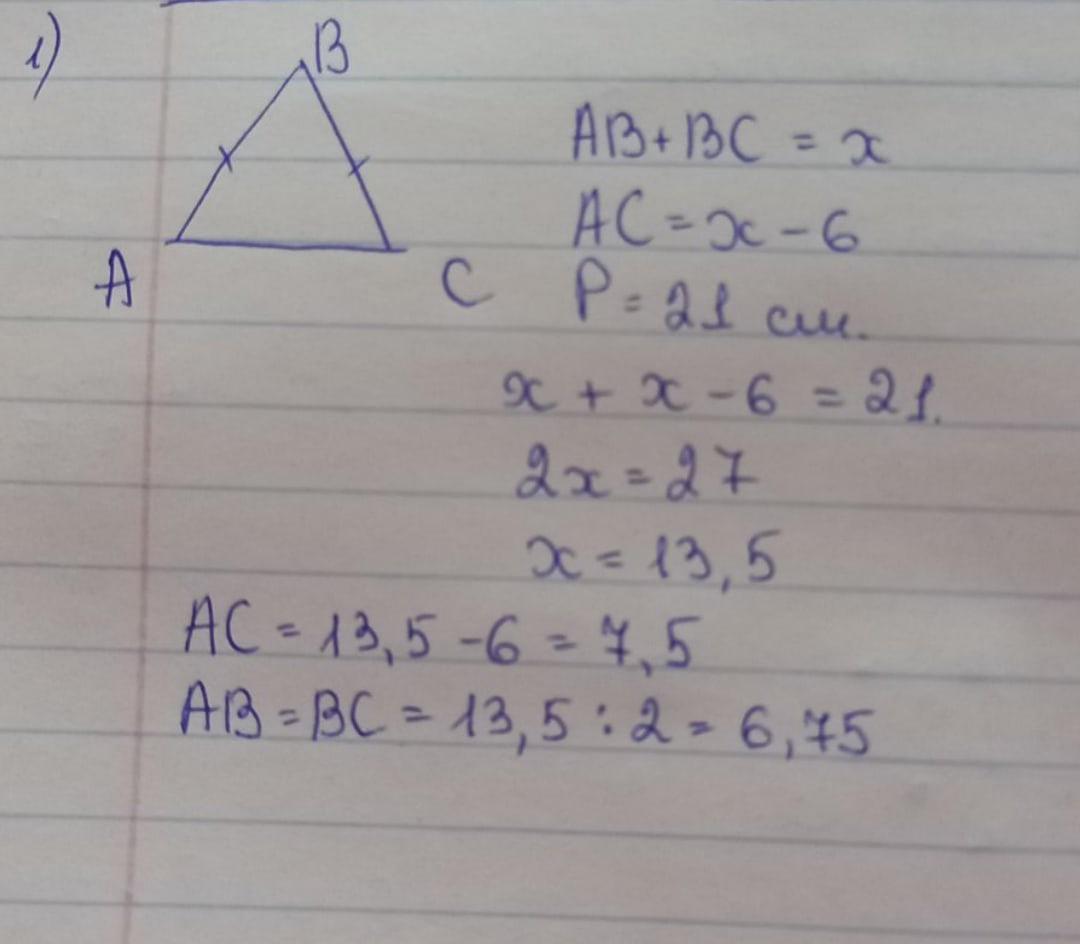 1)
B
A
C
AB+BC = x
AC = x - 6
P = 21 см.
x + x - 6 = 21.
2x = 27
x = 13,5
AC = 13,5 - 6 = 7,5
AB = BC = 13,5 : 2 = 6,75